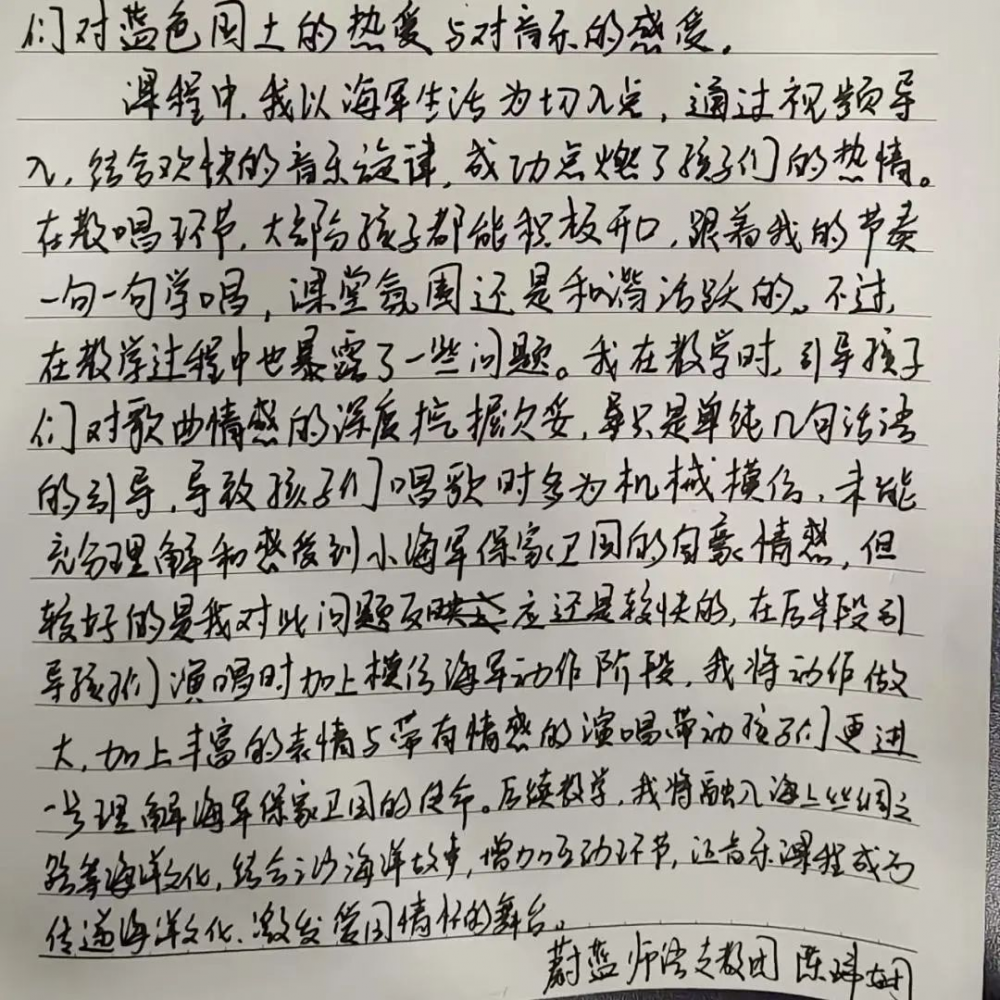 们对蓝色国土的热爱与对音乐的感受。
课程中,我以海军生活为切入点,通过视频导
入,结合欢快的音乐旋律,成功点燃了孩子们的热情。
在教唱环节,大部分孩子都能积极开口,跟着我的节奏
一句一句学唱,课堂氛围还是和谐活跃的。不过,
在教学过程中也暴露了一些问题。我在教学时,引导孩子
们对歌曲情感的深度挖掘欠妥,单只是单纯几句话语
的引导,导致孩子们唱歌时多为机械模仿,未能
充分理解和感受到小海军保家卫国的自豪情感,但
较好的是我对此问题反应还是较快的,在后半段引
导孩子们演唱时加上模仿海军动作阶段,我将动作做
大,加上丰富的表情与带有情感的演唱带动孩子们更进
一步理解海军保家卫国的使命。后续教学,我将融入海上丝绸之
路等海洋文化,结合海洋故事,增加互动环节,让音乐课程成为
传递海洋文化、激发爱国情怀的舞台。
蔚蓝师语支教团 陈